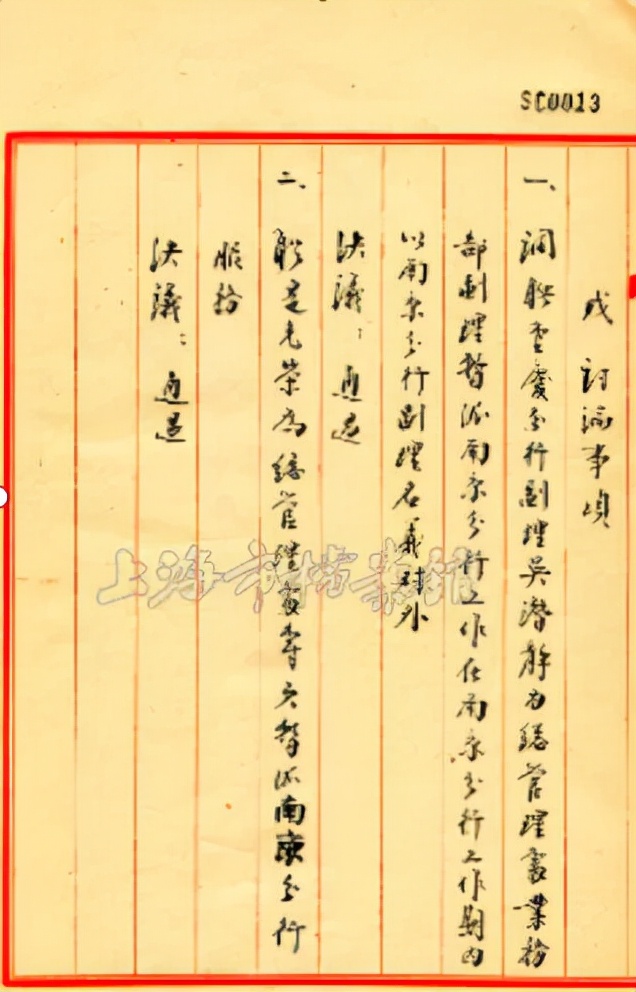 SC0013
戊 討論事項
一、調聯重慶分行副理吳潛靜為總管理處業務
部副理暫派南京分行工作在南京分行工作期內
以南京分行副理名義對外
決議：通過
二、聘是光榮為總管理處專員暫派南京分行
服務
決議：通過
上海市档案館